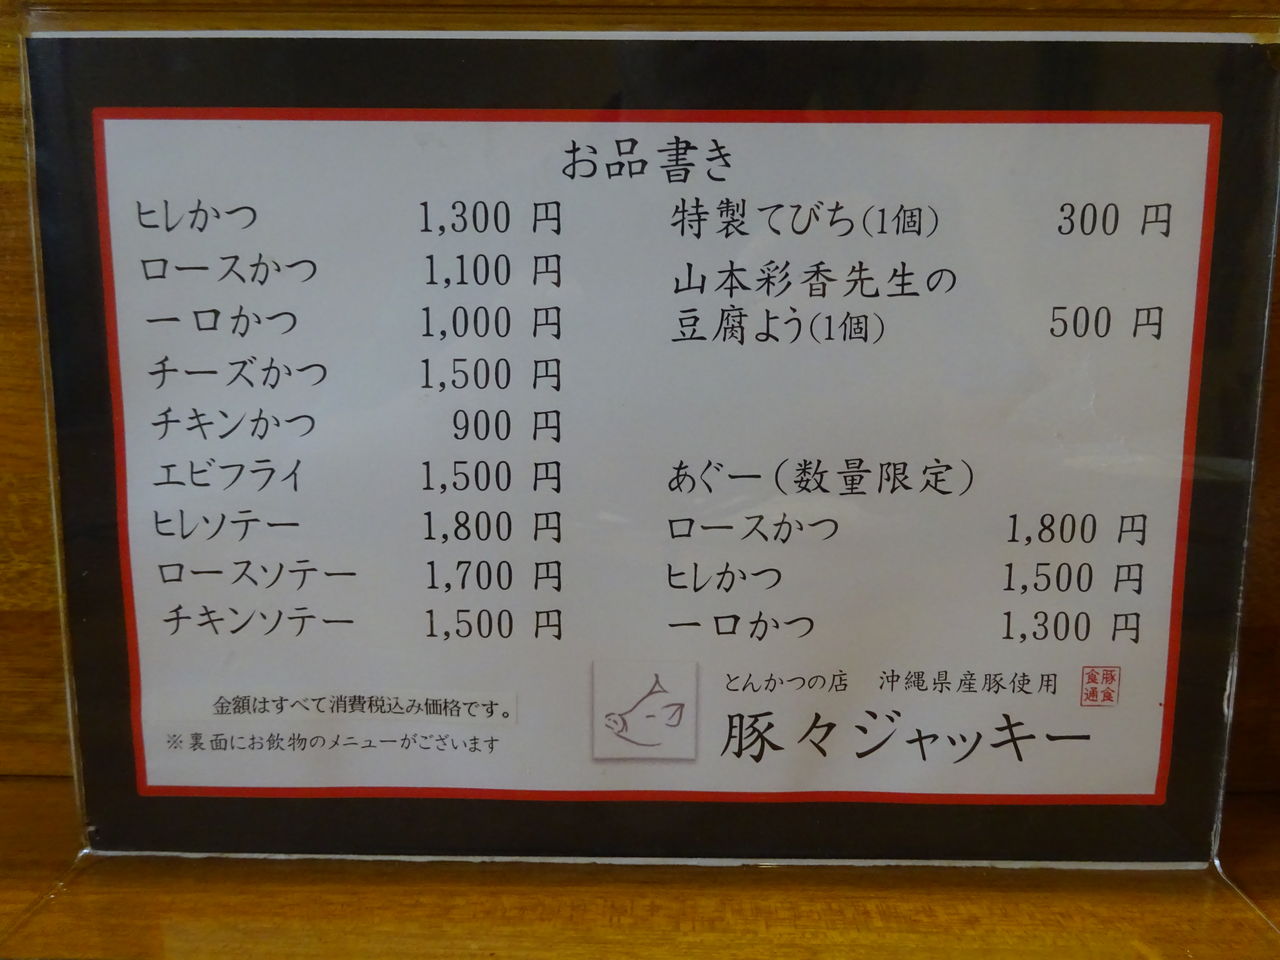 お品書き
ヒレかつ 1,300 円
ロースかつ 1,100 円
一口かつ 1,000 円
チーズかつ 1,500 円
チキンかつ 900 円
エビフライ 1,500 円
ヒレソテー 1,800 円
ロースソテー 1,700 円
チキンソテー 1,500 円
金額はすべて消費税込み価格です。
※裏面にお飲物のメニューがございます
特製てびち(1個) 300 円
山本彩香先生の
豆腐よう(1個) 500 円
あぐー(数量限定)
ロースかつ 1,800 円
ヒレかつ 1,500 円
一口かつ 1,300 円
とんかつの店 沖縄県産豚使用
豚食
食通
豚々ジャッキー